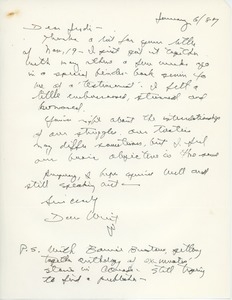 January 6/89
Dear Judi -
Thanks a lot for your letter
of Nov. 19 - I just got it together
with many others a few weeks ago
in a special
me as a "testimonial". I felt a
little embarrassed, stunned and
honored.
You're right about the interrelationship
of our struggles. Our tactics
may differ sometimes, but I feel
our basic objective is the same
Anyway, I hope you're well and
still speaking out -
Sincerely
Don
P.S. With Bonnie Burstow getting
together anthology of ex-inmates
in Canada. Still trying
to find a publisher -